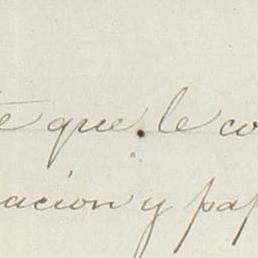 te que le co
ación y pap